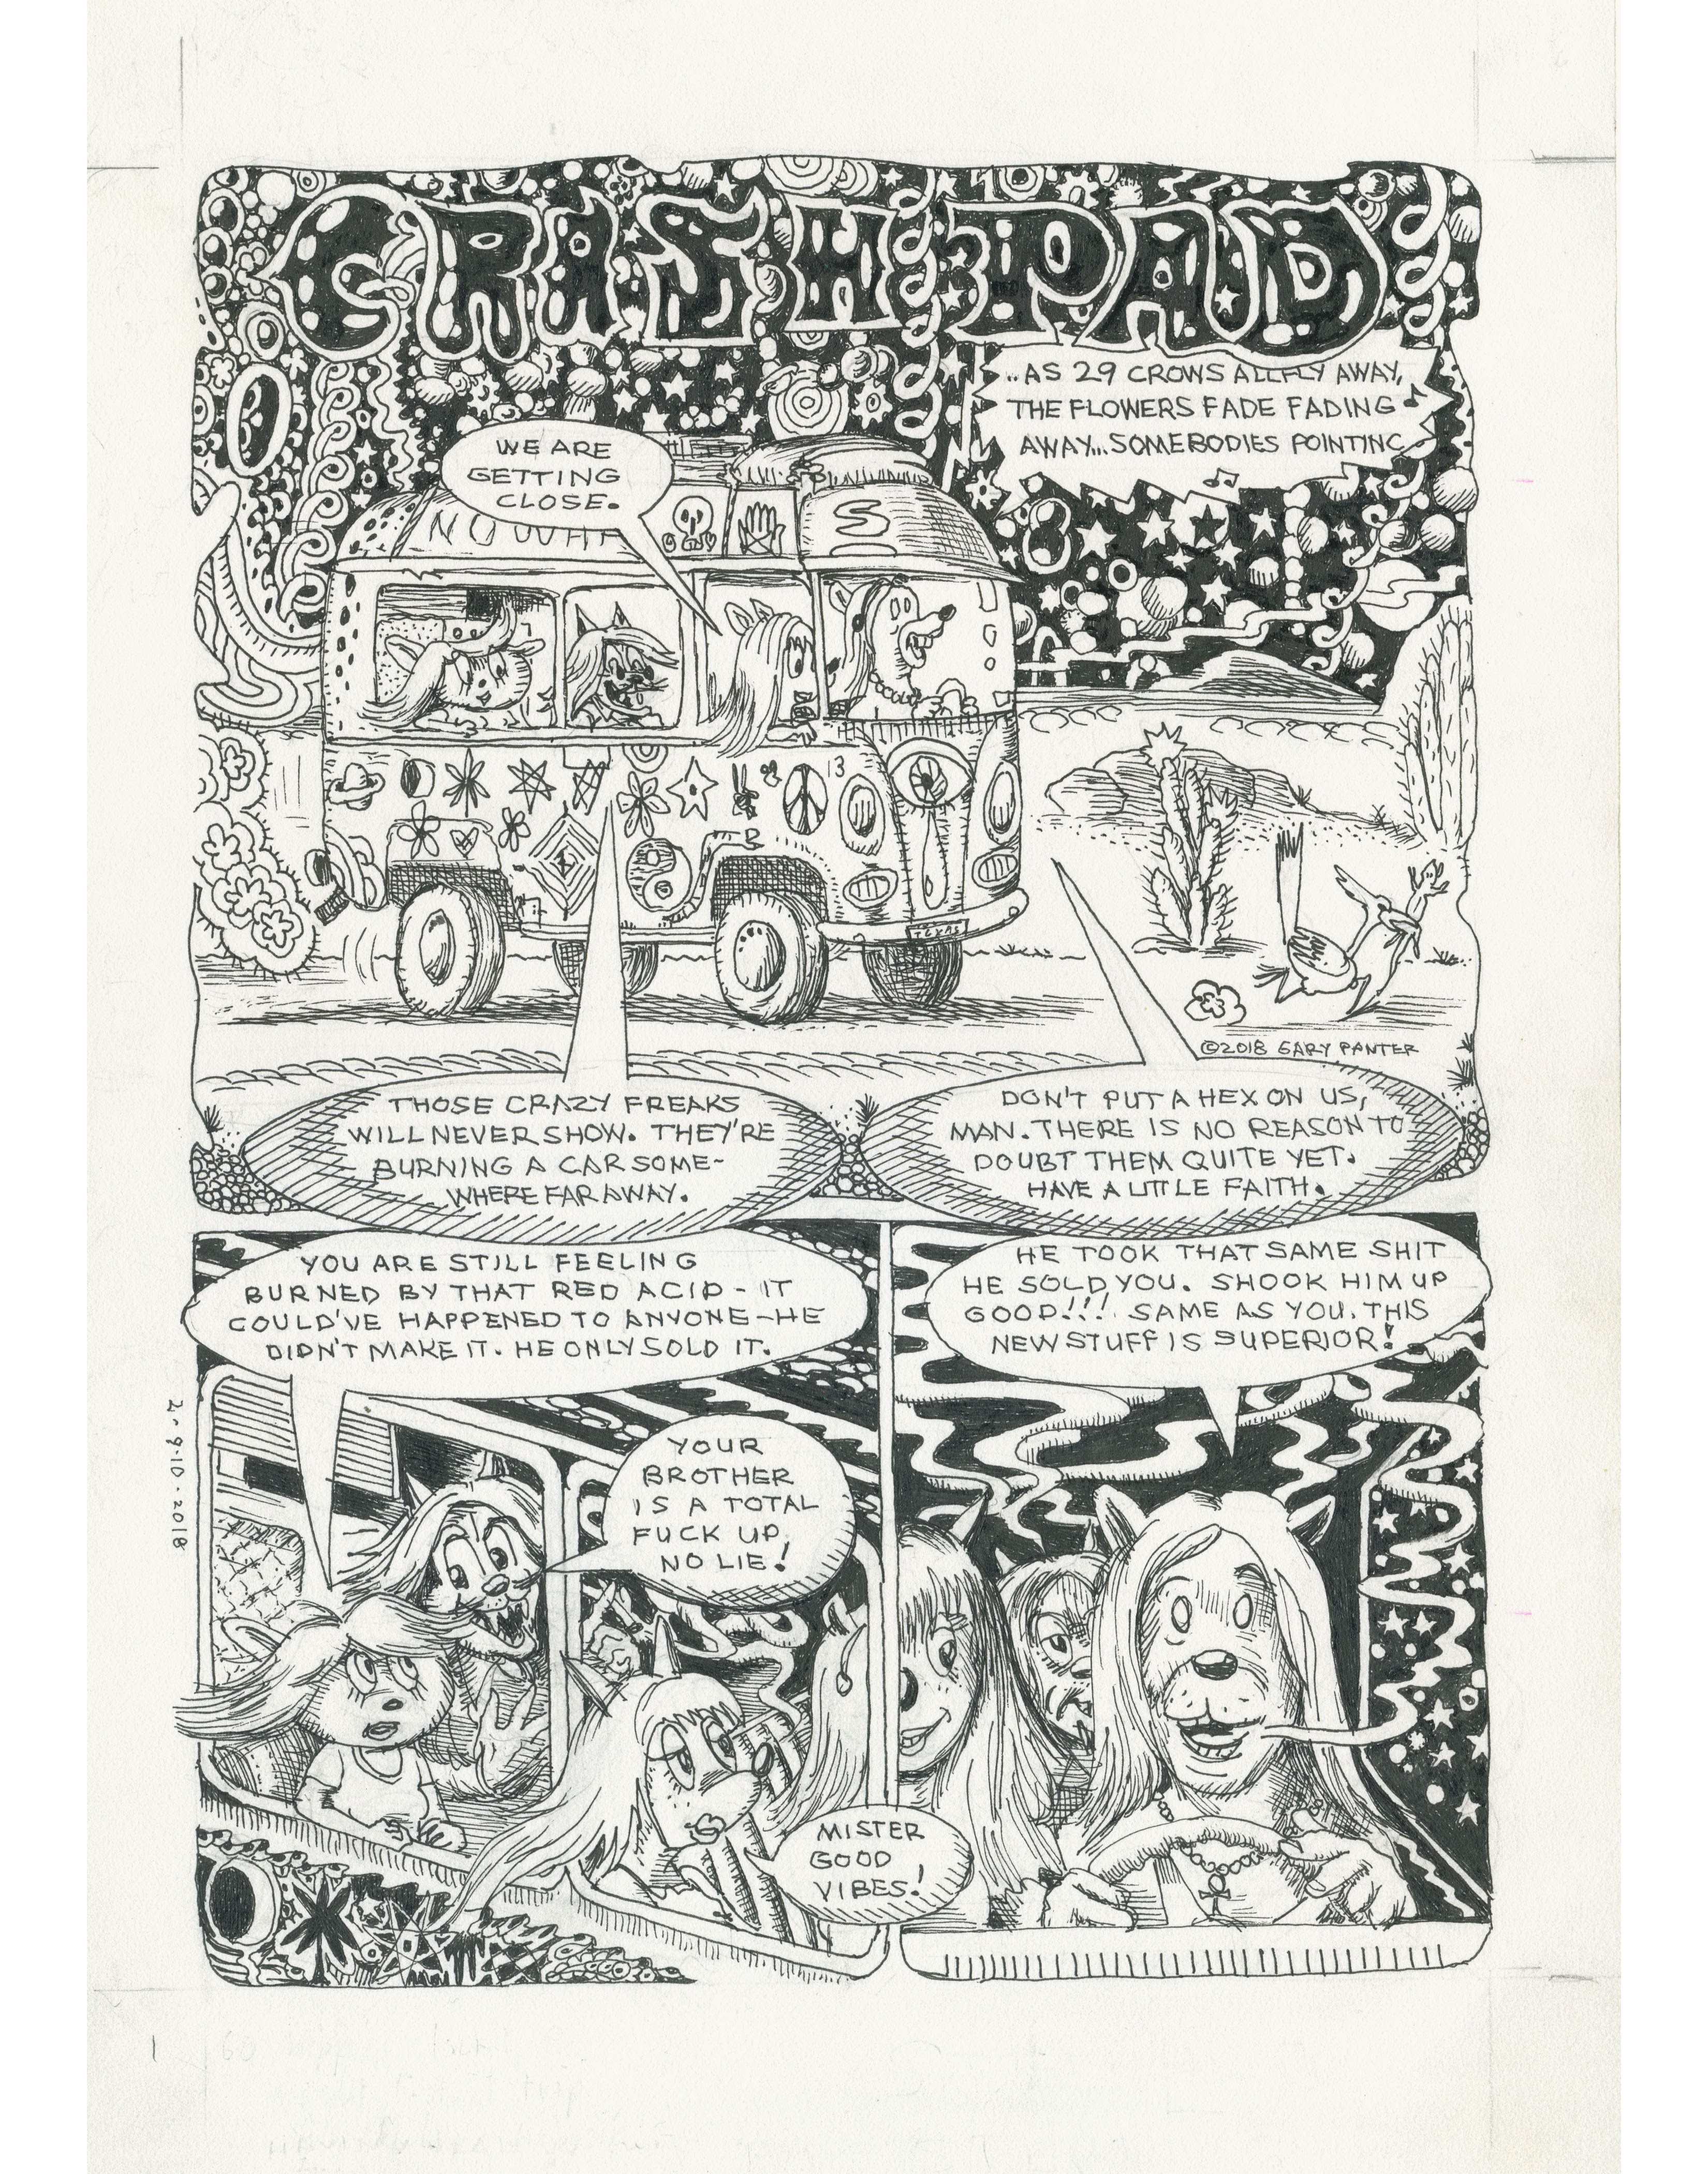 CRASH PAD
..AS 29 CROWS ALL FLY AWAY,
THE FLOWERS FADE FADING
AWAY...SOMEBODIES POINTING
WE ARE
GETTING
CLOSE.
S
13
TEXAS
©2018 GARY PANTER
THOSE CRAZY FREAKS
WILL NEVER SHOW. THEY'RE
BURNING A CAR SOME-
WHERE FAR AWAY.
DON'T PUT A HEX ON US,
MAN. THERE IS NO REASON TO
DOUBT THEM QUITE YET.
HAVE A LITTLE FAITH.
YOU ARE STILL FEELING
BURNED BY THAT RED ACID - IT
COULD'VE HAPPENED TO ANYONE - HE
DIDN'T MAKE IT. HE ONLY SOLD IT.
YOUR
BROTHER
IS A TOTAL
FUCK UP,
NO LIE!
MISTER
GOOD
VIBES!
HE TOOK THAT SAME SHIT
HE SOLD YOU. SHOOK HIM UP
GOOD!!! SAME AS YOU. THIS
NEW STUFF IS SUPERIOR!
2.9.10.2018
1